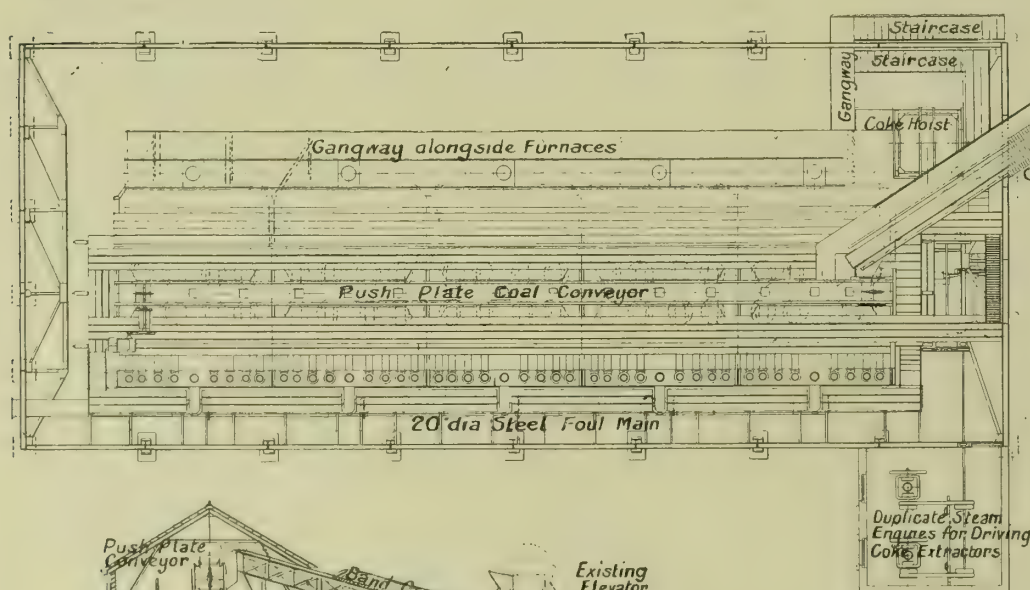 Staircase
Staircase
Gangway
Coke Hoist
Gangway alongside Furnaces
Push Plate Coal Conveyor
20" dia Steel Foul Main
Duplicate Steam
Engines for Driving
Coke Extractors
Push Plate
Conveyor
Band
Existing
Elevator